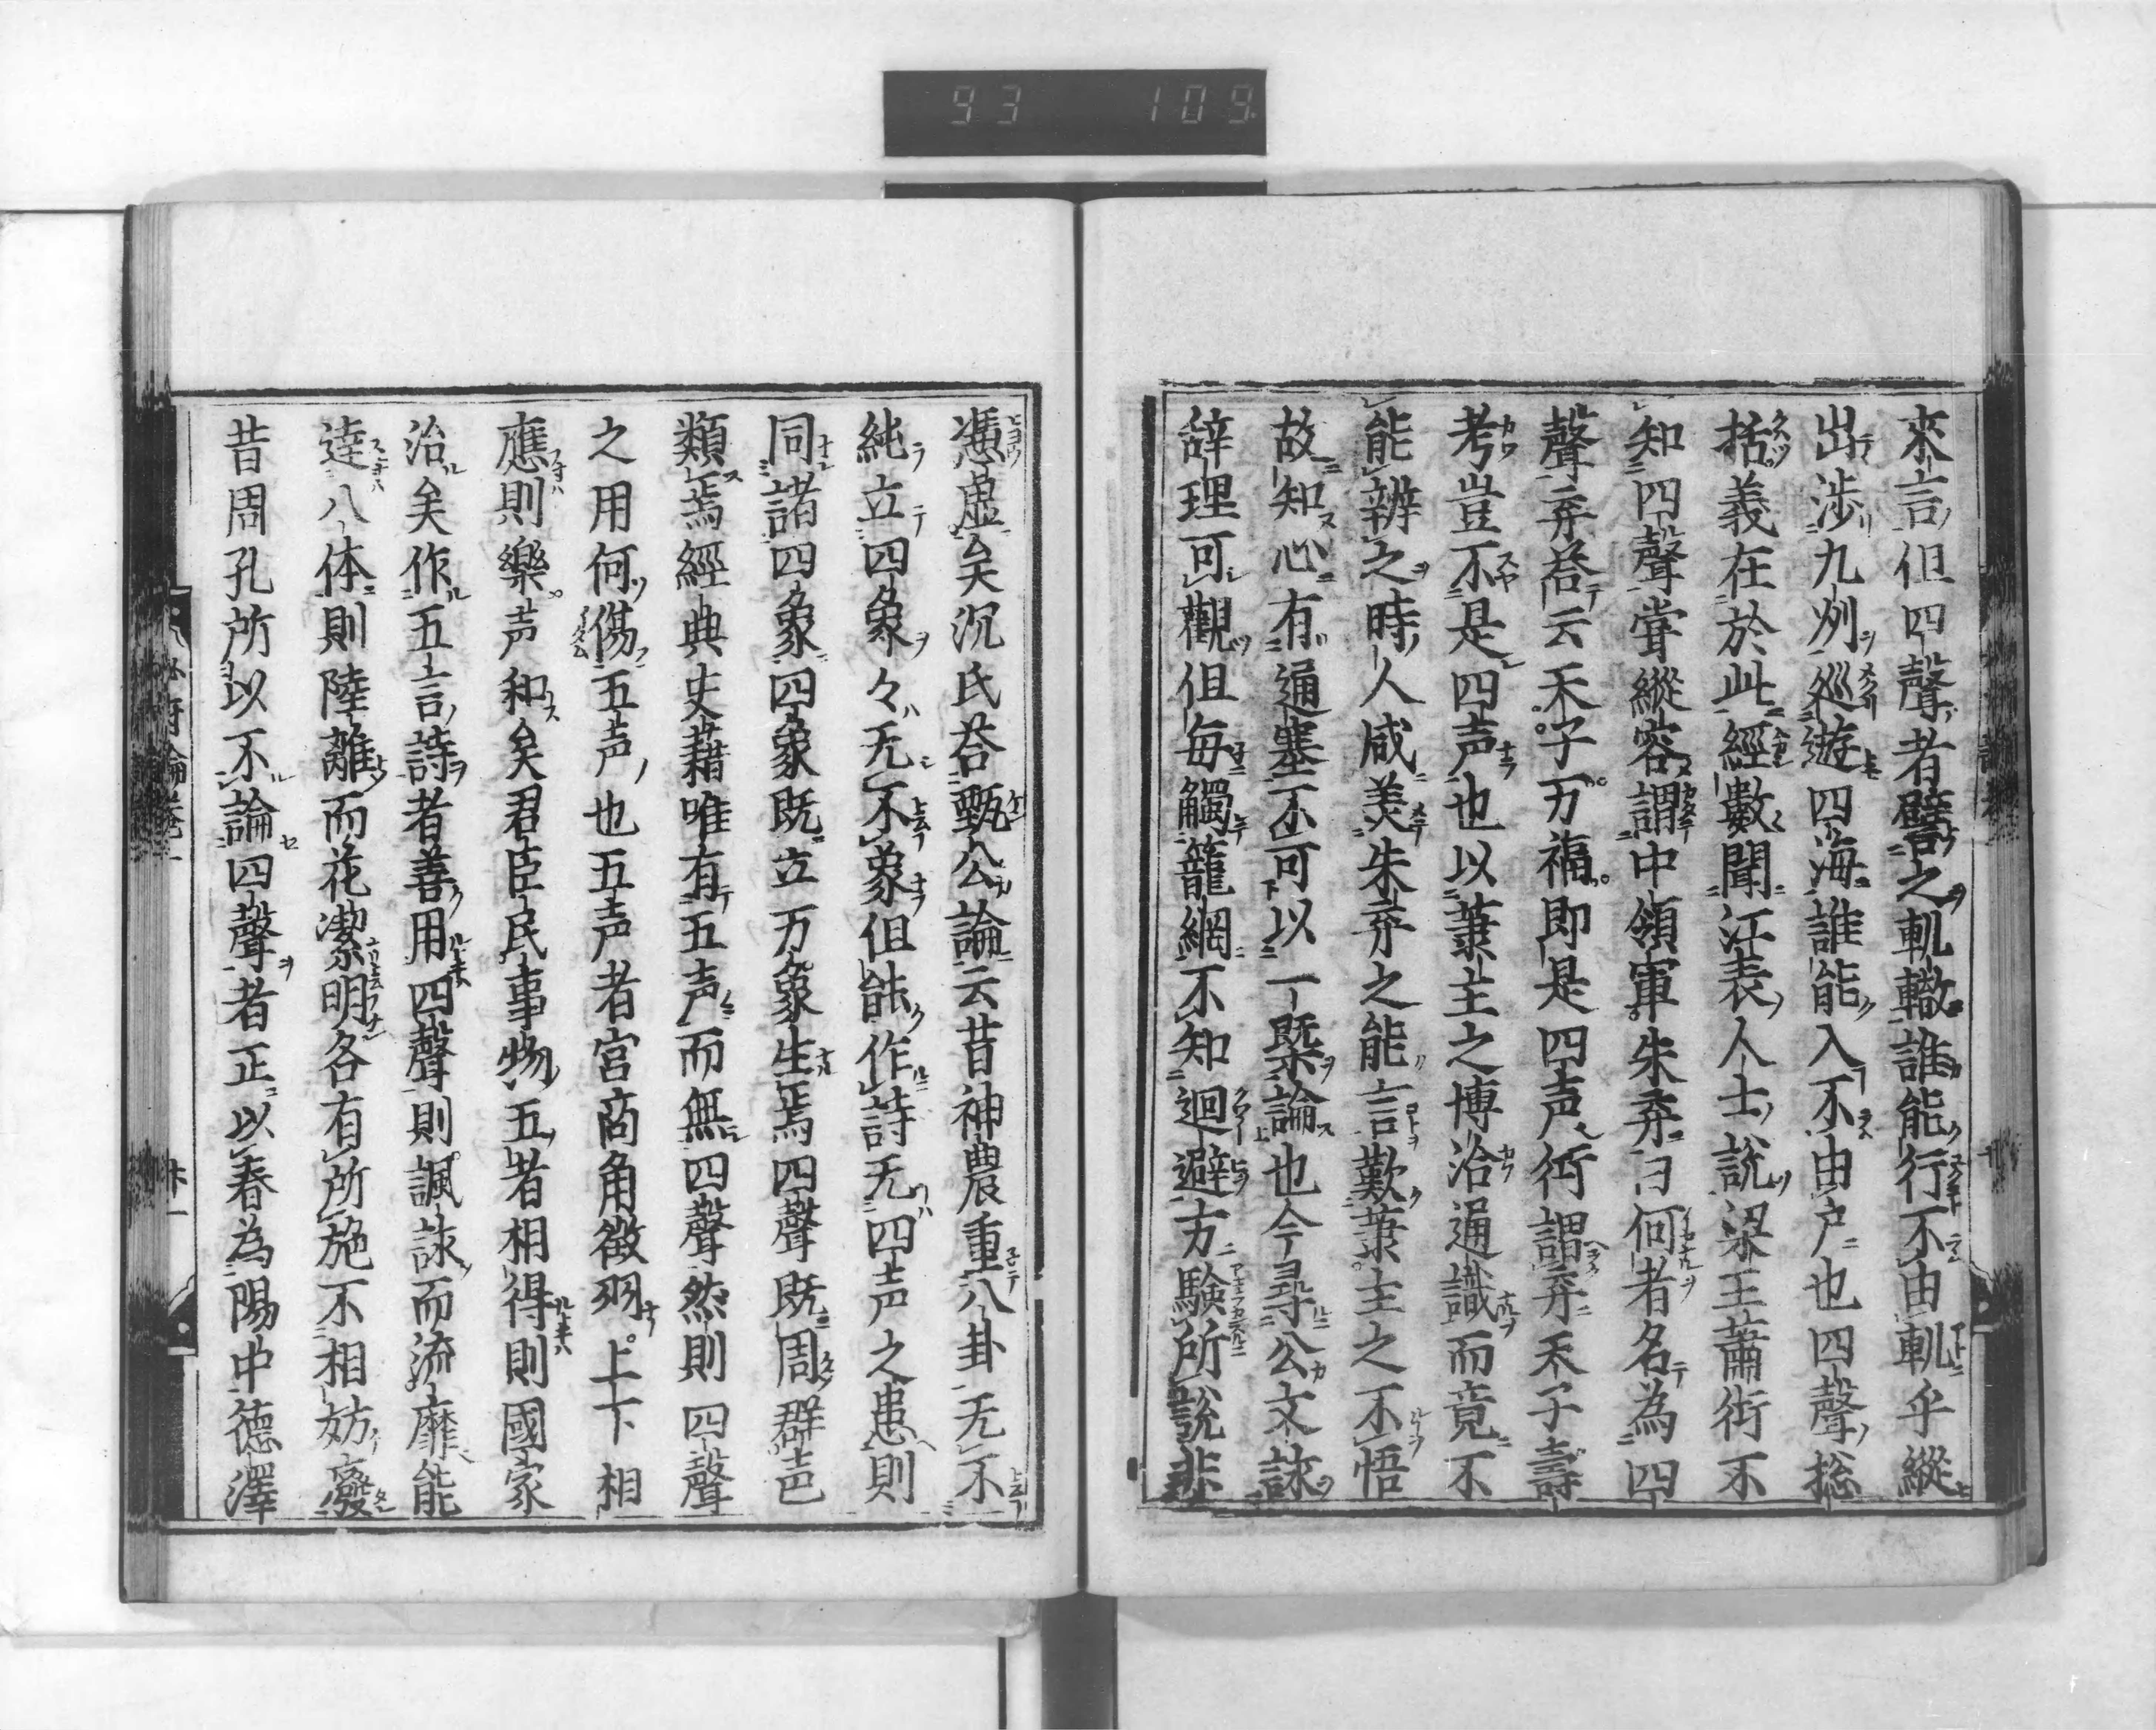 93 109
來言但四聲者譬之軌轍誰能行不由軌乎縱
出渉九州巡遊四海誰能入不由户也四聲捴
括義在於此經數聞江表人士説梁王蕭衍不
知四聲甞縱容謂中領軍朱异曰何者名為四
聲异荅云天子万福即是四声衍謂异天子壽
考豈不是四声也以蕭主之博洽通識而竟不
能辨之時人咸美朱异之能言歎蕭主之不悟
故知心有通塞不可以一槩論也今尋公文詠
辞理可觀但毎觸籠網不知迴避方驗所説非
憑虚矣沉氏荅甄公論云昔神農重八卦无不
純立四象々无不象但能作詩无四声之患則
同諸四象四象既立万象生焉四聲既周群芭
類焉經典史藉唯有五声而無四聲然則四聲
之用何傷五声也五声者宮商角徴羽上下相
應則樂声和矣君臣民事物五者相得則國家
治矣作五言詩者善用四聲則諷詠而流靡能
逹八体則陸離而花潔明各有所施不相妨癈
昔周孔所以不論四聲者正以春為陽中德澤